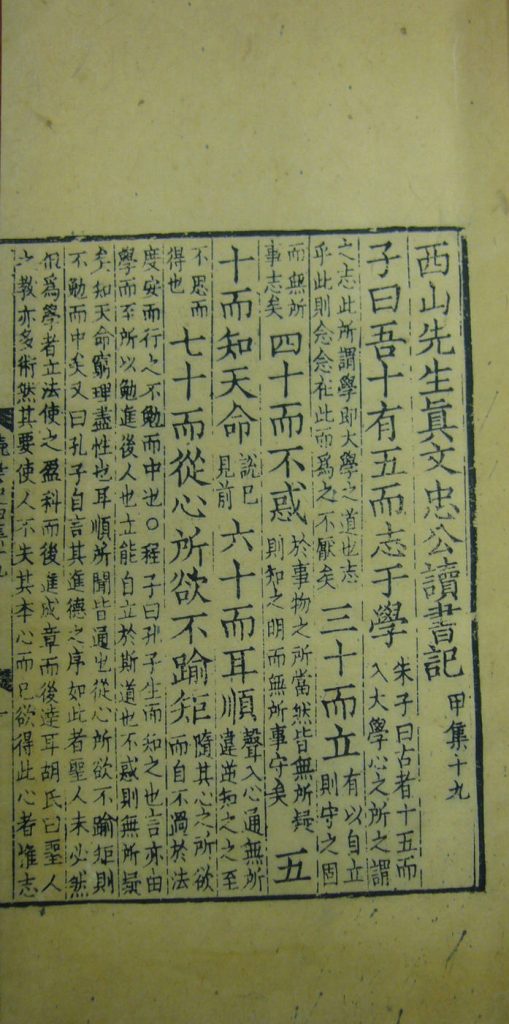 西山先生真文忠公讀書記 甲集十九
子曰吾十有五而志于學 朱子曰古者十五而入大學心之所之謂
之志此所謂學即大學之道也志乎此則念念在此而為之不厭矣 三十而立 有以自立則守之固
而無所事志矣 四十而不惑 於事物之所當然皆無所疑則知之明而無所事守矣 五
十而知天命 說已見前 六十而耳順 聲入心通無所違逆知之之至
不思而得也 七十而從心所欲不踰矩 隨其心之所欲而自不過於法
度安而行之不勉而中也○程子曰孔子生而知之也言亦由
學而至所以勉進後人也立能自立於斯道也不惑則無所疑
矣知天命窮理盡性也耳順所聞皆通也從心所欲不踰矩則
不勉而中矣又曰孔子自言其進德之序如此者聖人未必然
但為學者立法使之盈科而後進成章而後達耳胡氏曰聖人
之教亦多術然其要使人不失其本心而已欲得此心者惟志